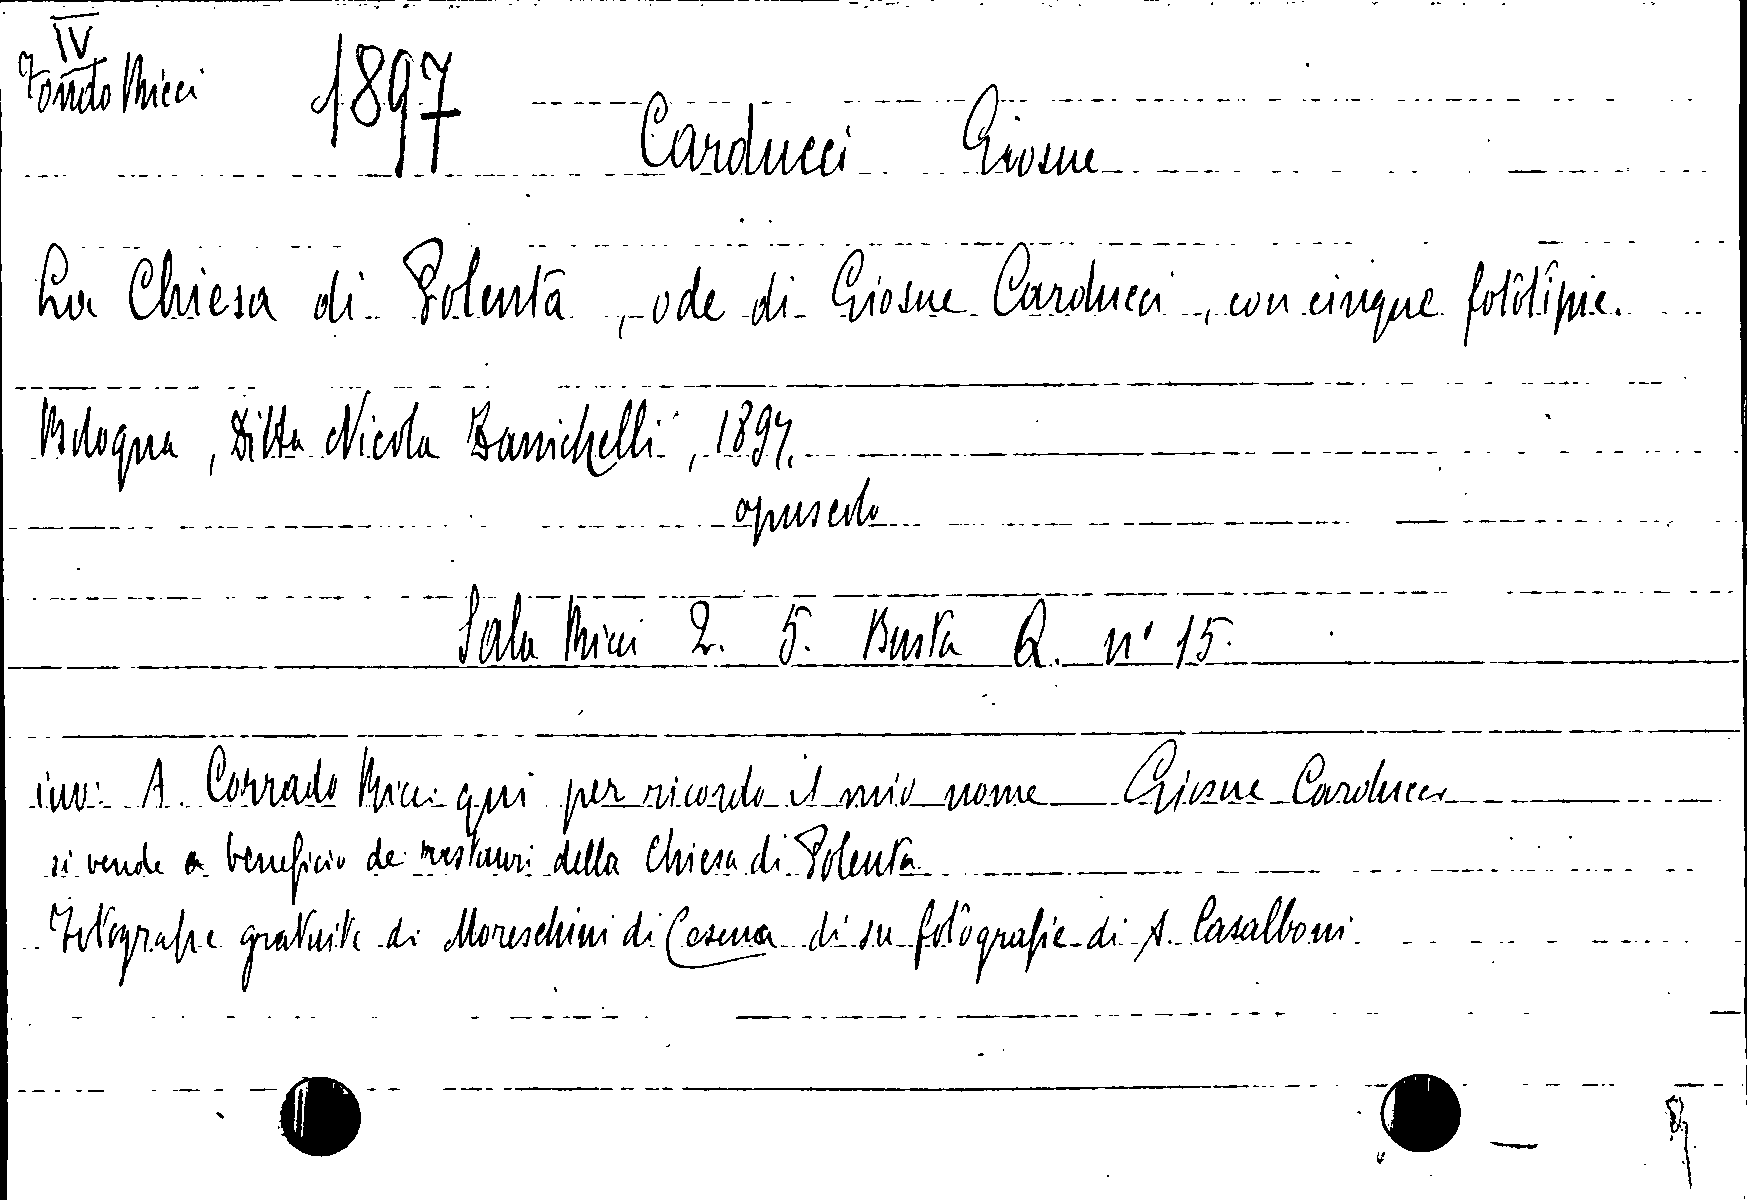 IV
Fondo Ricci
1897
Carducci Giosue
La Chiesa di Polenta, ode di Giosue Carducci, con cinque fototipie.
Bologna, Ditta Nicola Zanichelli, 1897.
opuscolo
Sala Ricci 2. 5. Busta Q. n° 15.
inv: A Corrado Ricci qui per ricordo il mio nome Giosue Carducci
si vende a beneficio de restauri della Chiesa di Polenta
Fotografie gratuite di Moreschini di Cesena di su fotografie di A. Casalboni.